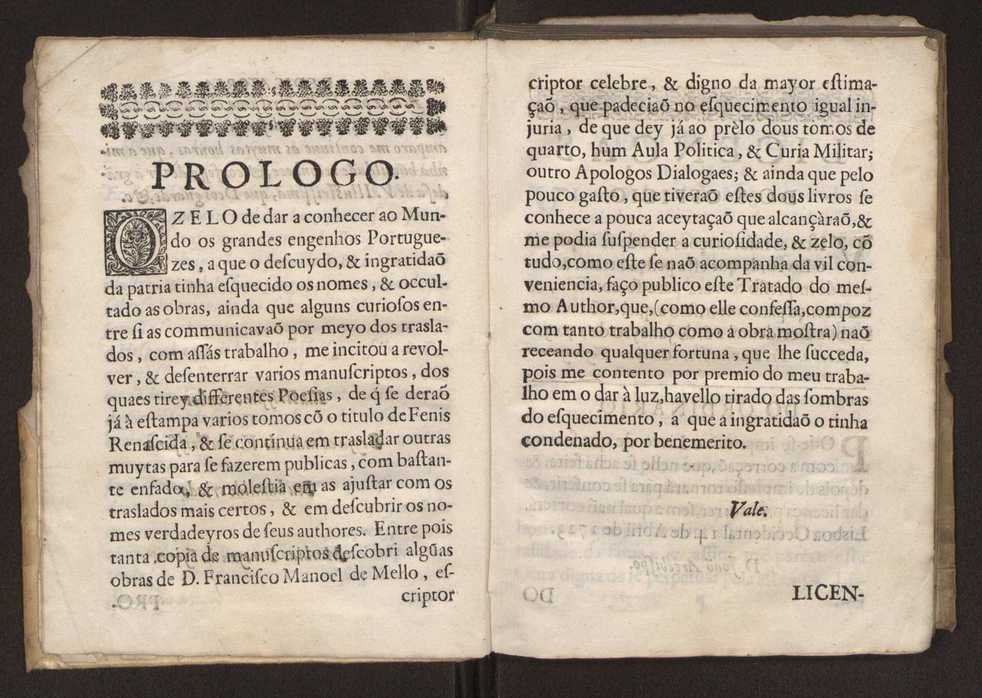 PROLOGO.
O ZELO de dar a conhecer ao Mun-
do os grandes engenhos Portugue-
zes, a que o descuydo, & ingratidaõ
da patria tinha eſquecido os nomes, & occul-
tado as obras, ainda que alguns curioſos en-
tre ſi as communicavaõ por meyo dos trasla-
dos, com aſſás trabalho, me incitou a revol-
ver, & deſenterrar varios manuſcriptos, dos
quaes tirey differentes Poeſias, de q̃ ſe deraõ
já à eſtampa varios tomos cõ o titulo de Fenis
Renaſcida, & ſe continua em trasladar outras
muytas para ſe fazerem publicas, com baſtan-
te enfado, & moleſtia em as ajuſtar com os
traslados mais certos, & em deſcubrir os no-
mes verdadeyros de ſeus authores. Entre pois
tanta copia de manuſcriptos deſcobri algũas
obras de D. Franciſco Manoel de Mello, eſ-
criptor
criptor celebre, & digno da mayor eſtima-
çaõ, que padeciaõ no eſquecimento igual in-
juria, de que dey já ao prèlo dous tomos de
quarto, hum Aula Politica, & Curia Militar;
outro Apologos Dialogaes; & ainda que pelo
pouco gaſto, que tiveraõ eſtes dous livros ſe
conhece a pouca aceytaçaõ que alcançàraõ, &
me podia ſuſpender a curioſidade, & zelo, cõ
tudo, como eſte ſe naõ acompanha da vil con-
veniencia, faço publico eſte Tratado do meſ-
mo Author, que, (como elle confeſſa, compoz
com tanto trabalho como a obra moſtra) naõ
receando qualquer fortuna, que lhe ſucceda,
pois me contento por premio do meu traba-
lho em o dar à luz, havello tirado das ſombras
do eſquecimento, a que a ingratidaõ o tinha
condenado, por benemerito.
Vale.
LICEN-